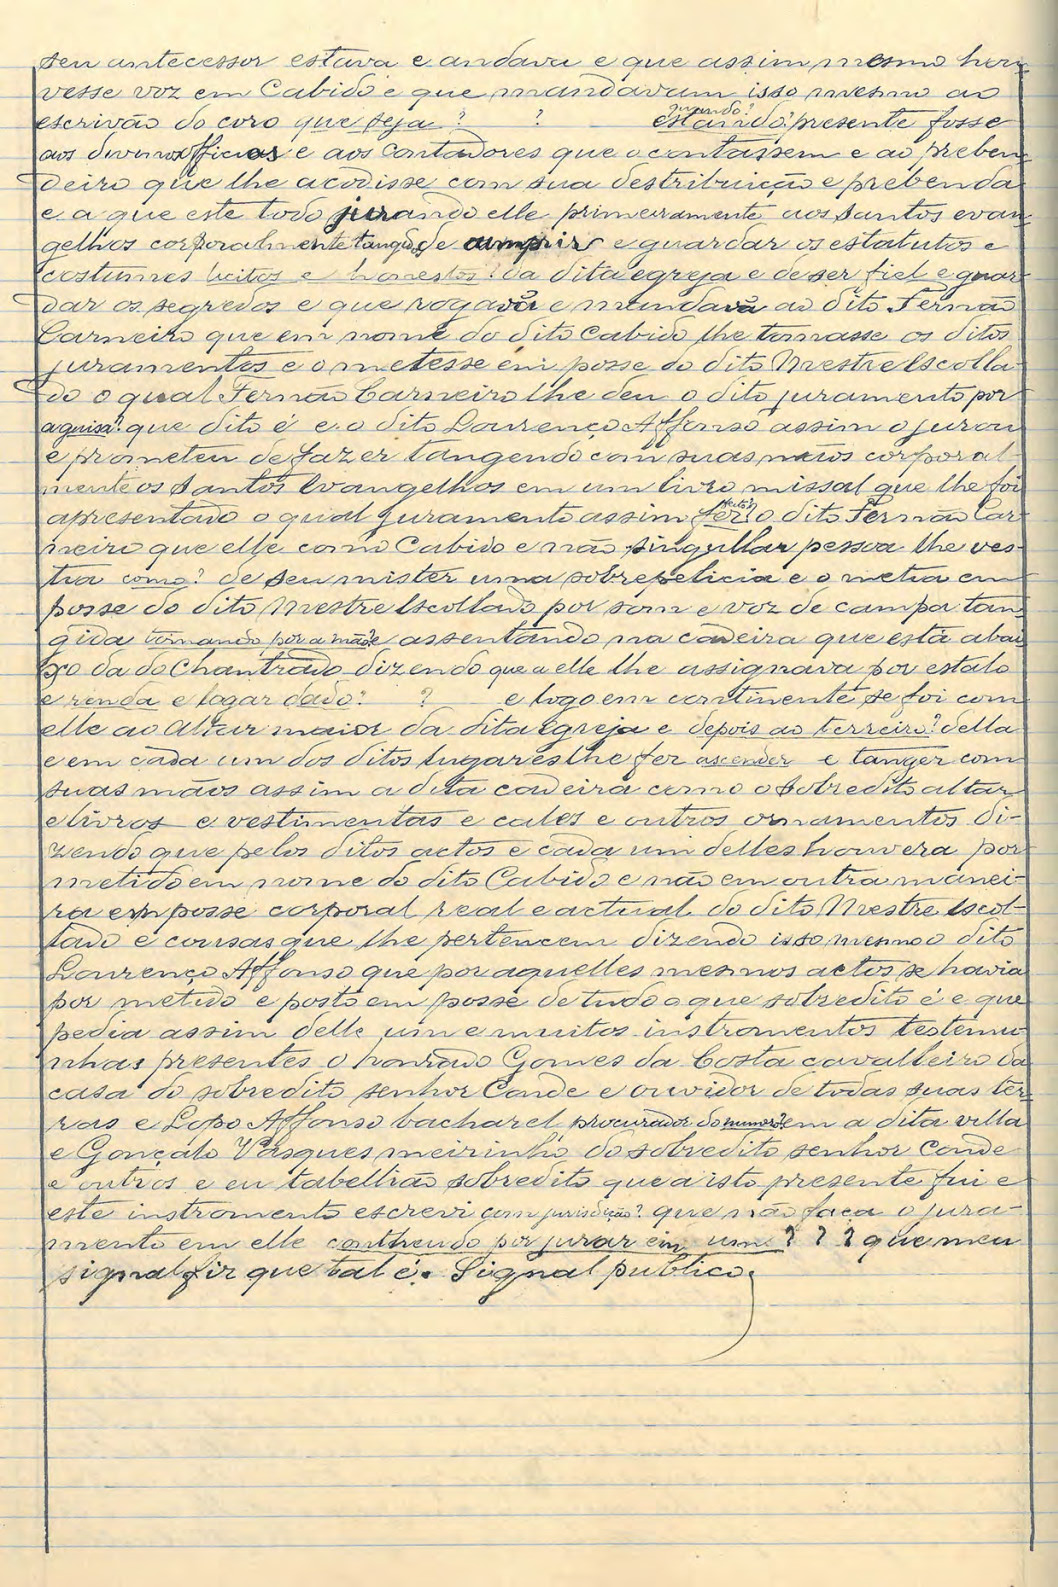 seu antecessor estava e andava e que assim mesmo hou-
vesse voz em Cabido e que mandavam isso mesmo ao
escrivão do coro que seja ? ? quando? estando? presente fosse
aos divinos officios e aos Contadores que o contassem e ao preben-
deiro que lhe acodisse com sua destribuição e prebenda
e a que este todo jurando elle primeiramente aos Santos evan-
gelhos corporalmente tangidos de cumprir e guardar os estatutos e
costumes licitos e honestos? da dita egreja e de ser fiel e guar-
dar os segredos e que rogavã e mandavã ao dito Fernão
Carneiro que em nome do dito Cabido lhe tomasse os ditos
juramentos e o metesse em posse do dito Mestre Escolla-
do o qual Fernão Carneiro lhe deu o dito juramento por
a guisa? que dito é e o dito Lourenço Affonso assim o jurou
e prometeu de fazer tangendo com suas mãos corporal-
mente os Santos Evangelhos em um livro missal que lhe foi
apresentado o qual juramento assim fez? feito? o dito Fernão Car-
neiro que elle como Cabido e não singullar pessoa lhe ves-
tia como? de seu mister uma sobrepelicia e o metia em
posse do dito Mestre Escollado por som e voz de campa tan-
gida tomando por a mão? e assentando na cadeira que está abai-
xo da do Chantrado dizendo que a elle lhe assignava por estalo
e renda e logar dado? ? e logo em continente se foi com
elle ao Altar maior da dita Egreja e depois ao terreiro? della
e em cada um dos ditos lugares lhe fez ascender e tanger com
suas mãos assim a dita cadeira como o sobredito altar
e livros e vestimentas e cales e outros ornamentos di-
zendo que pelos ditos actos e cada um delles houvera por
metido em nome do dito Cabido e não em outra manei-
ra em posse corporal real e actual do dito Mestre Escol-
lado e cousas que lhe pertencem dizendo isso mesmo o dito
Lourenço Affonso que por aquelles mesmos actos se havia
por metido e posto em posse de tudo o que sobredito é e que
pedia assim delle um e muitos instromentos testemu-
nhas presentes o honrado Gomes da Costa cavalleiro da
casa do sobredito senhor Conde e ouvidor de todas suas ter-
ras e Lopo Affonso bacharel procurador do numero? em a dita villa
e Gonçalo Vasques meirinho do sobredito senhor Conde
e outros e eu tabellião sobredito que a isto presente fui e
este instromento escrevi com jurisdição? que não faça o jura-
mento em elle contheudo por jurar em um? ? ? que meu
signal fiz que tal é. Signal publico.